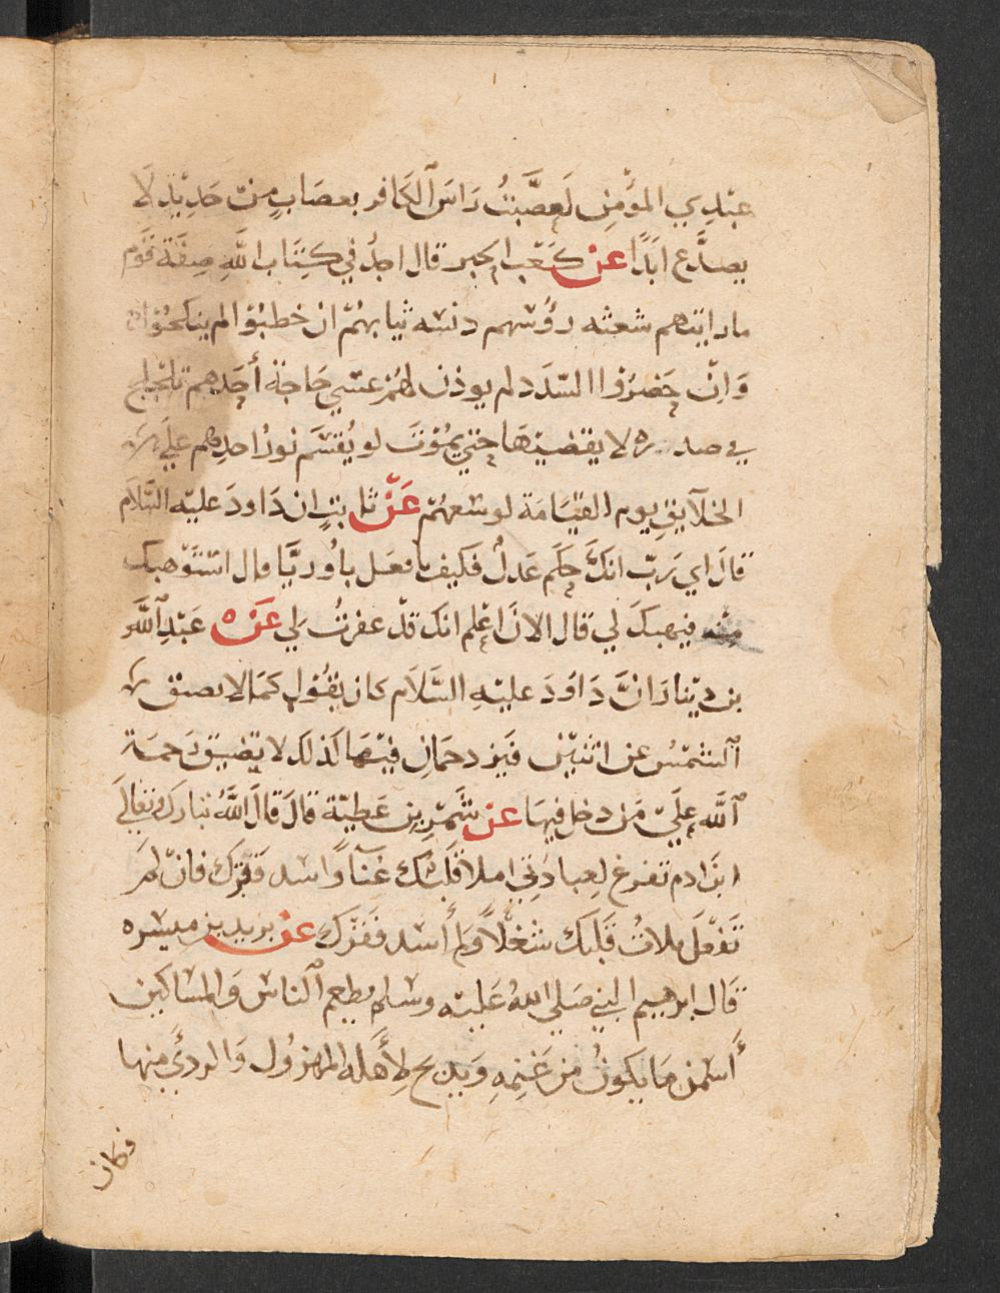 عبْدِي المؤْمنِ لَعصَّبْتُ رَاسَ ٱلكَافر بعصَابٍ منْ حَدِيْدٍ لَا
يصدَّع اَبَدًا عن كعْب الحبر قال اجدُ في كِتَاب اللَّهِ صِفَةَ قَوْم
مارايتهم شعثه رؤُسهم دنسَه ثيابهُمْ ان خطبُوْا لم ينكحُوْا
وَاِنْ حَضرُوْا السّدَد لم يوذن لهُمْ عسَي حَاجة أحَدِهم تلجلج
في صدره لا يقضيْهَا حتي يمُوْتَ لو يُقسَم نورُ احدِهم علَي
الخلآيقِ يوم القيَامَة لوسعهُمْ عَنْ ثابتٍ ان دَاودَ عليْه السَّلَام
قالَ اي رَبّ انكَّ حكَم عَدلٌ فكيف تفعَل باُوريَّا قال اسْتَوْهبك
منْه فيهبكَ لي قال الانَ اعْلم انك قدْ غفرتُ لي عَنْ عَبْدِاللَّهِ
بن ديْنار انَّ دَاوُدَ عليْهِ السَّلَام كان يقُوْل كمَا لا يضيْق
ٱلشمْسُ عن اثنيْن فيزدحمَانِ فيْهَا كذلك لا تضيْق رَحمَة
ٱللَّه علَيْ مَنْ دخل فيهَا عن شَمَّر بنِ عَطيّة قالَ قالَ اللَّهُ تبارك وتعَالَي
ابنَ ادم تفرغ لِعبادَتي املا قلْبَك غنَآ وَاسُد فَقْرَك فانْ لَمْ
تَفْعَل ملاتُ قَلبَك شغْلاً وَلم أسُد فَقْرَك عن يزيد بن ميسره
قَال ابرهيم النبي صَلي اللهُ عَليْه وسَلم يطعم ٱلناس وَالمسَاكين
أَسْمنَ مَا يكَونُ مِنْ غَنمِهِ وَيذبح لِأهْلهِ المهْزُول وَالردئَ منها
فكان